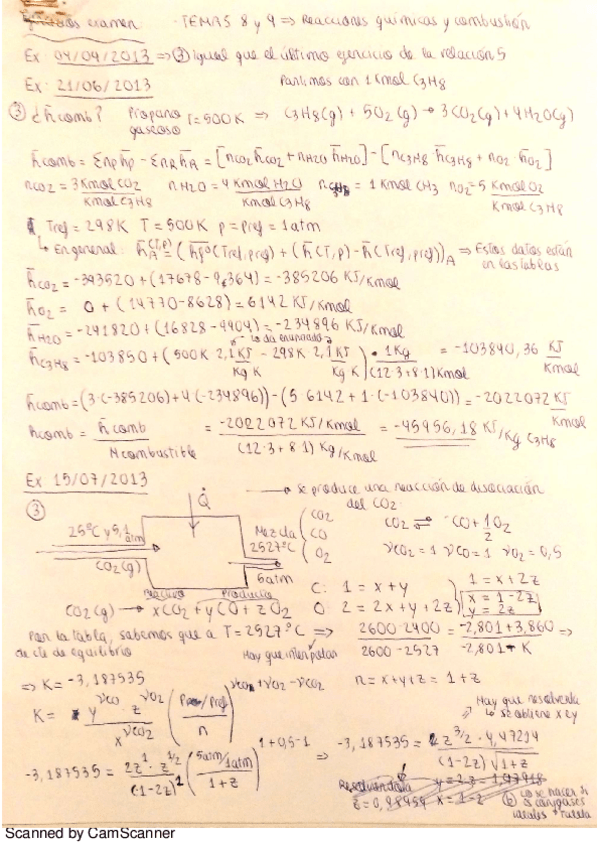 examen TEMAS 8 y 9 => Reacciones químicas y combustión
Ex 04/04/2013 => ③ igual que el último ejercicio de la relación 5
Ex: 21/06/2013 Partimos con 1 Kmol C3H8
③ ¿h̄comb? Propano gaseoso T=500K => C3H8(g) + 5O2(g) → 3CO2(g) + 4H2O(g)
h̄comb = Σnp h̄p - ΣnR h̄R = [nCO2 h̄CO2 + nH2O h̄H2O] - [nC3H8 h̄C3H8 + nO2 h̄O2]
nCO2 = 3 Kmol CO2/Kmol C3H8 nH2O = 4 Kmol H2O/Kmol C3H8 = 1 Kmol CH3 nO2 = 5 Kmol O2/Kmol C3H8
Tref = 298K T = 500K p = pref = 1atm
↳ En general: h̄A(T,p) = (h̄f°(Tref,pref) + (h̄(T,p) - h̄(Tref,pref))A => Estos datos están en las tablas
h̄CO2 = -393520 + (17678 - 9364) = -385206 KJ/Kmol
h̄O2 = 0 + (14770 - 8628) = 6142 KJ/Kmol
h̄H2O = -241820 + (16828 - 9904) = -234896 KJ/Kmol
lo da enunciado
h̄C3H8 = -103850 + (500K 2,1 KJ/Kg K - 298K 2,1 KJ/Kg K) · 1Kg/(12·3+8·1)Kmol = -103840,36 KJ/Kmol
h̄comb = (3·(-385206) + 4(-234896)) - (5·6142 + 1·(-103840)) = -2022072 KJ/Kmol
hcomb = h̄comb/Mcombustible = -2022072 KJ/Kmol/(12·3+8·1) Kg/Kmol = -45956,18 KJ/Kg C3H8
Ex 15/07/2013
③ Q̇ → se produce una reacción de disociación del CO2.
25°C y 5,1 atm
CO2(g)
Mezcla 2527°C
CO2
CO
O2
CO2 ⇌ CO + 1/2 O2
νCO2 = 1 νCO = 1 νO2 = 0,5
6atm
Reactivo Producto
CO2(g) → xCO2 + yCO + zO2
C: 1 = x+y
O: 2 = 2x+y+2z
1 = x+2z
x = 1-2z
y = 2z
Por la tabla, sabemos que a T = 2527°C =>
cte de equilibrio
Hay que interpolar
2600-2400/2600-2527 = -2,801+3,860/-2,801-K =>
=> K = -3,187535 n = x+y+z = 1+z
K = y^νCO z^νO2/x^νCO2 (Pmez/Pref/n)^νCO+νO2-νCO2
Hay que resolverla
↳ se obtiene x e y
-3,187535 = 2z^1 · z^1/2/(1-2z)^1 (5atm/1atm/1+z)^1+0,5-1 => -3,187535 = 2 z^3/2 · 4,47214/(1-2z)√1+z
Resolviendola
z = 0,98959 x = 1-2 y = 2z = 1,97918
ⓑ lo se hacer
gases
ideales + tabla
Scanned by CamScanner